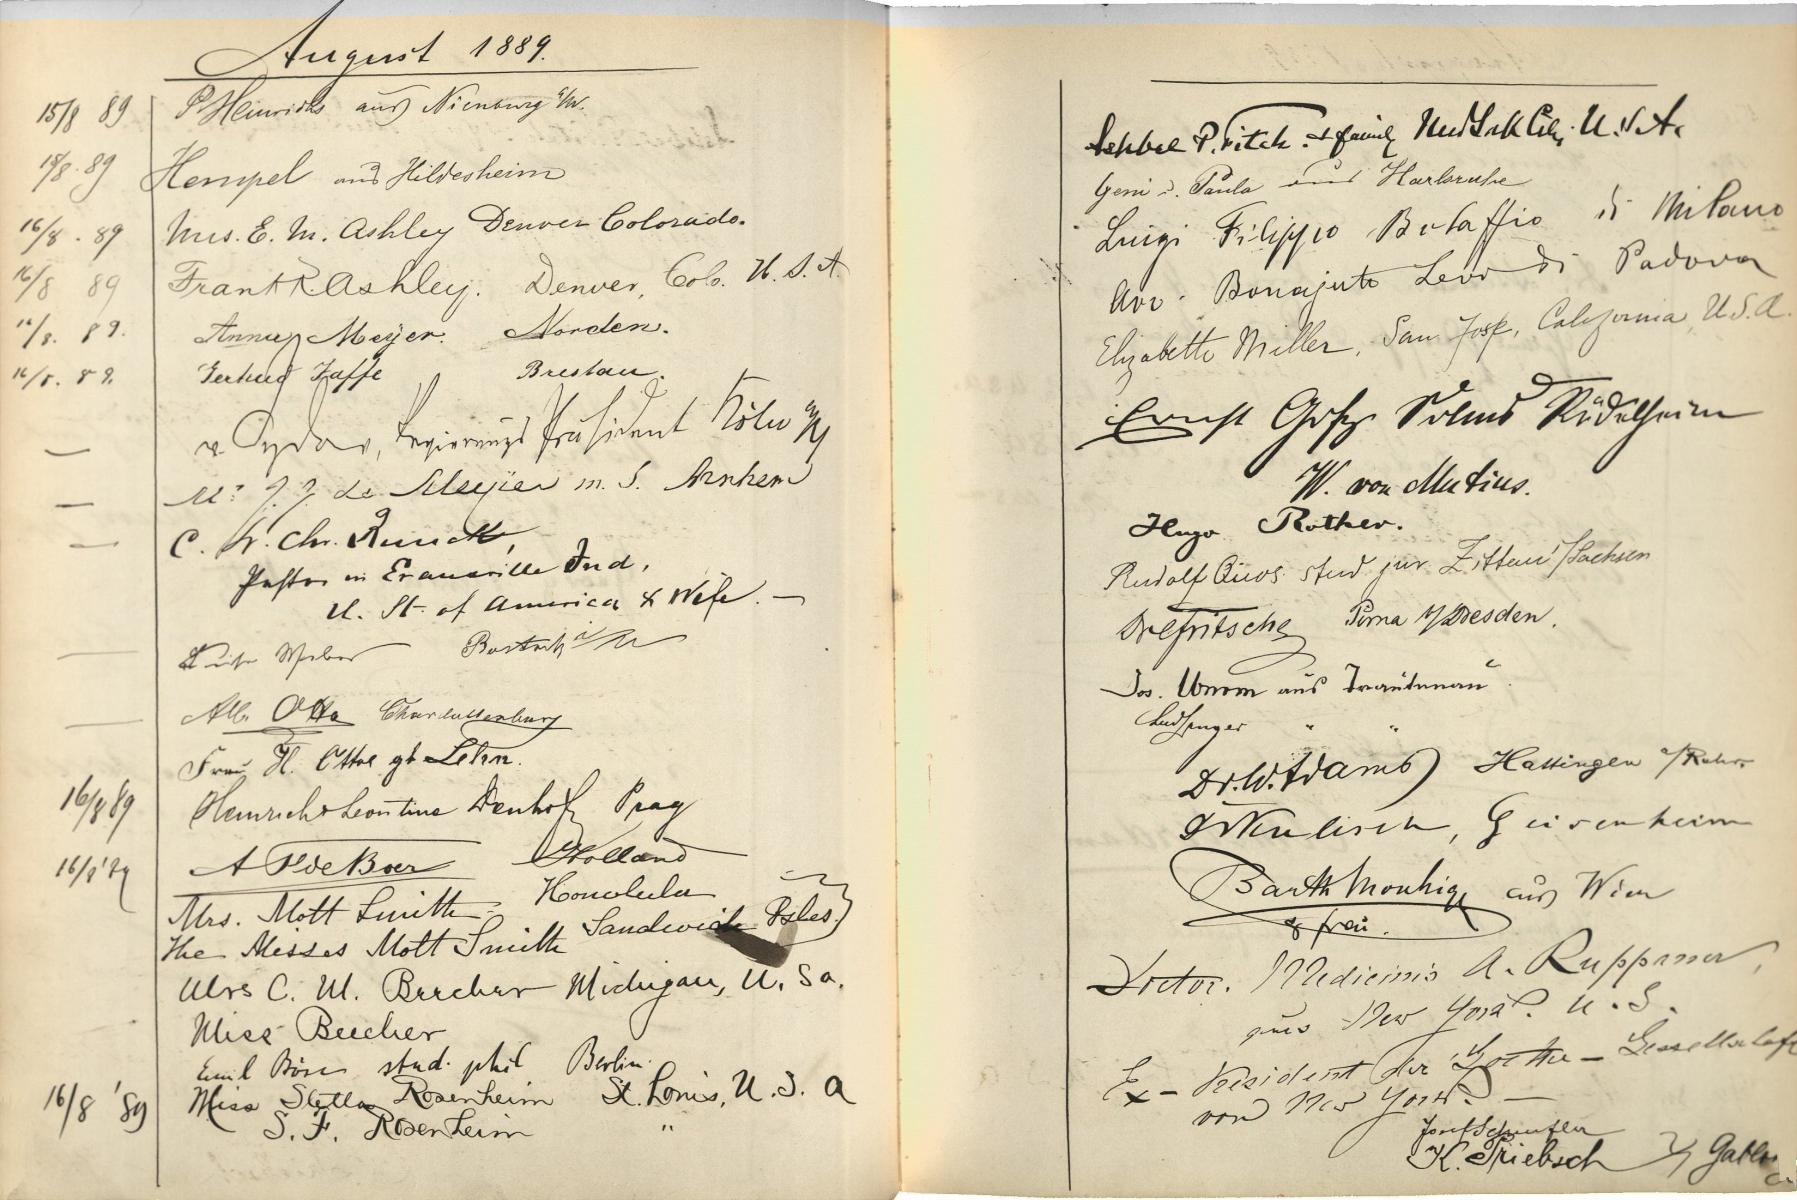 August 1889.
15/8 89 P Heinrichs aus Nienburg a/W.
15/8 89 Hempel aus Hildesheim
16/8. 89 Mrs. E. M. Ashley Denver Colorado.
16/8 89 Frank R. Ashley. Denver, Colo. U. S. A.
16/8. 89. Anny Meyer. Norden.
16/8. 89. Gertrud Jaffe Breslau.
— v Sydow, Regierungs Präsident Köln a/R
— Mr J. J. de Meijier m. S. Arnhem
— C. W. Chr.
Pastor in Evansville Ind.
U. St. of America & Wife. —
— Weber
— Alb. Otto Charlottenburg
Frau H. Otto gb
16/8 89 Heinrich & Leontine Prag
16/8 '89 A H de Boer Holland
Mrs. Mott Smith Honolulu
The Misses Mott Smith Sandwich Isles.
Mrs C. M. Beecher Michigan, U. S a.
Miss Beecher
Emil stud. phil Berlin.
16/8 '89 Miss Stella Rosenheim St. Louis, U. S. A
S. F. Rosenheim "
Ashbel P. Fitch. & family New York City. U. S. A.
u. Paula aus Karlsruhe
Luigi Filippo Bolaffio di Milano
Avv. Bonajuto Levi di Padova
Elizabeth Miller, San José, California, U.S.A.
Ernst Solms Rödelheim
W. von Mutius.
Hugo Rother.
Rudolf stud jur. Zittau i/Sachsen
Dr Fritsche Pirna b/Dresden.
Jos. aus Trautenau
" "
Dr. W. Adams Hattingen a/Ruhr.
Geisenheim
Barth aus Wien
& frau.
Doctor. Medicinis A. Ruppaner,
aus New York. U. S.
Ex-President der Goethe-Gesellschaft
von New York. —
Josef
K. Priebsch